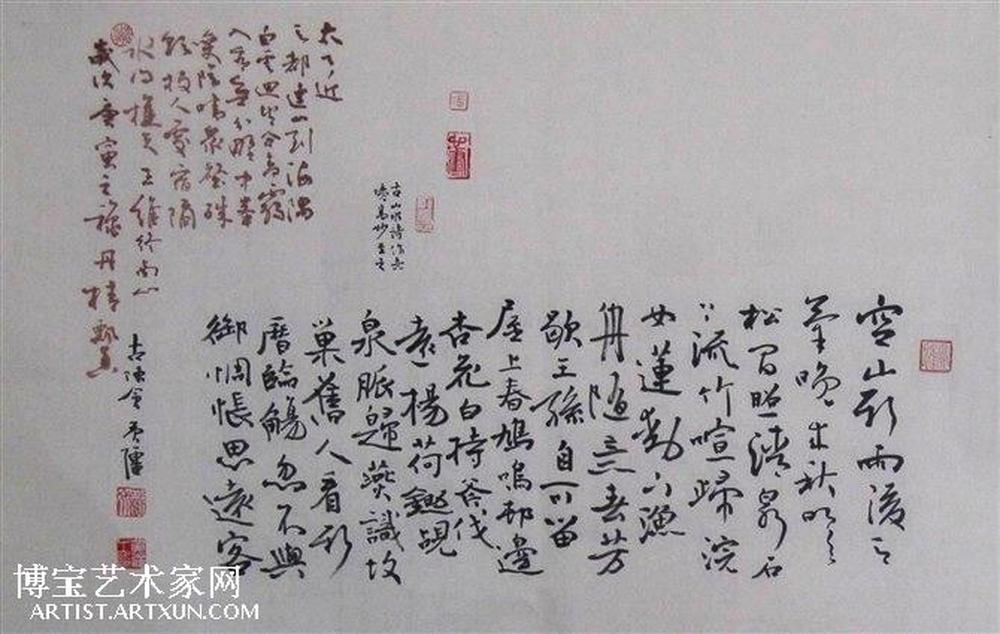 空山新雨後天
氣晚来秋明月
松間照清泉石
上流竹喧歸浣
女蓮動下漁
舟隨意春芳
歇王孫自可留
屋上春鳩鳴邨邊
杏花白持斧伐
遠楊荷鋤覘
泉脈歸燕識故
巢舊人看新
曆臨觴忽不與
御惆悵思遠客
太乙近
天都連山到海隅
白雲迴望合青靄
入看無分野中峯
變陰晴眾壑殊
欲投人處宿隔
水問樵夫王維終南山
歲次庚寅之
博宝艺术家网
ARTIST.ARTXUN.COM